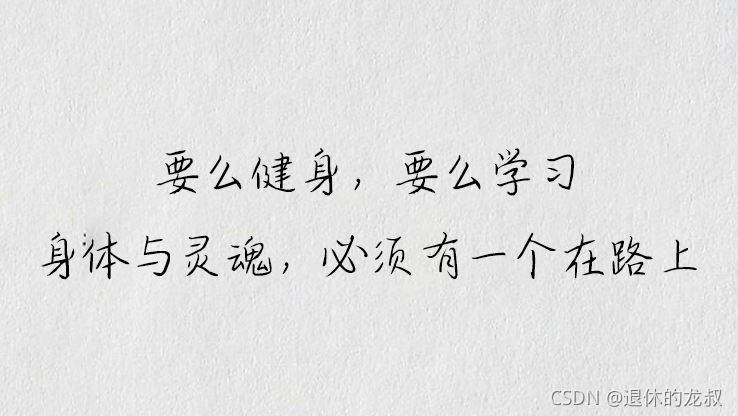 要么健身，要么学习
身体与灵魂，必须有一个在路上
CSDN @退休的龙叔